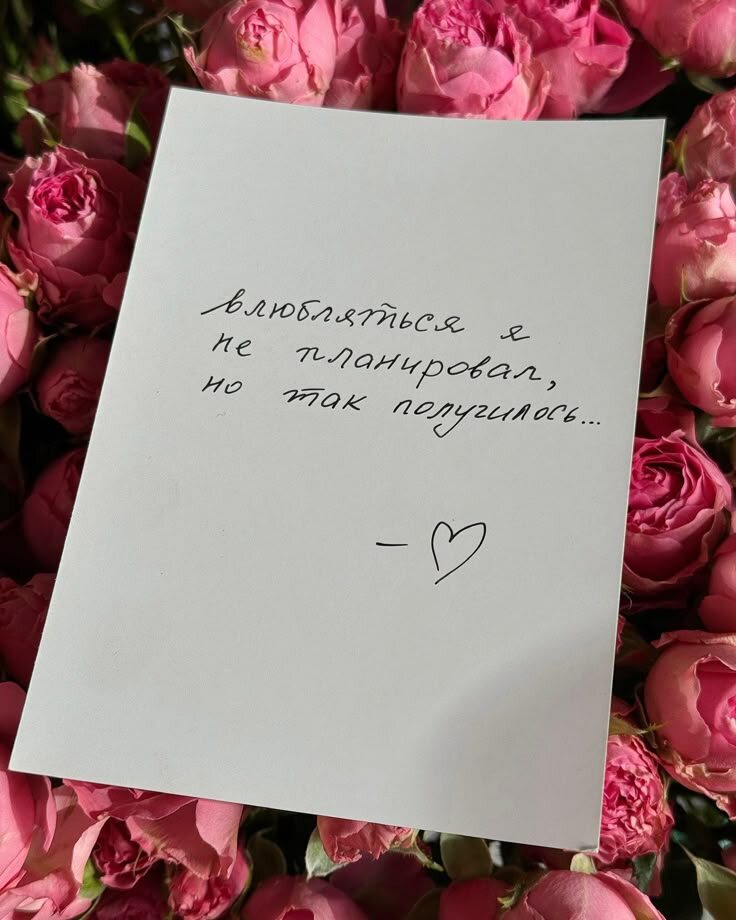 влюбляться я
не планировал,
но так получилось...
– ♡